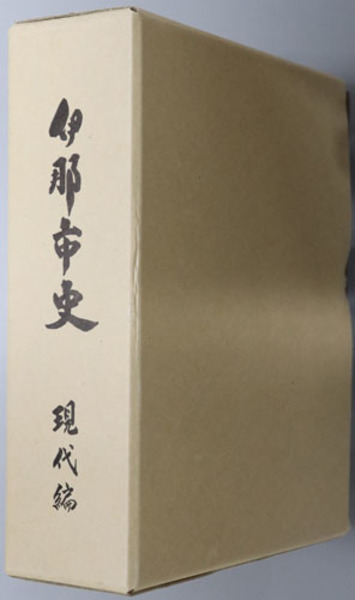 伊那市史
現代編